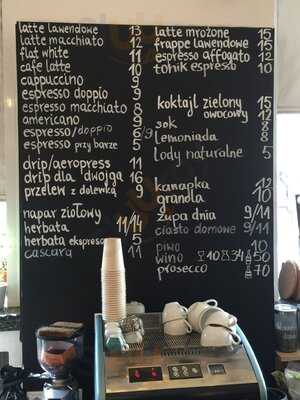 latte lawendowe 13
latte macchiato 12
flat white 11
cafe latte 10
cappuccino 9
espresso doppio 9
espresso macchiato 8
americano 9
espresso/doppio 6/9
espresso przy barze 5
drip/aeropress 11
drip dla dwojga 16
przelew z dolewką 9
napar ziołowy
herbata 11/14
herbata ekspresowa 5
cascara 11
latte mrożone 15
frappe lawendowe 15
espresso affogato 12
tonik espresso 10
koktajl zielony 15
owocowy 12
sok 8
lemoniada 8
lody naturalne 5
kanapka 12
granola 10
zupa dnia 9/11
ciasto domowe 9/11
piwo 10
wino 10 34 50
prosecco 70